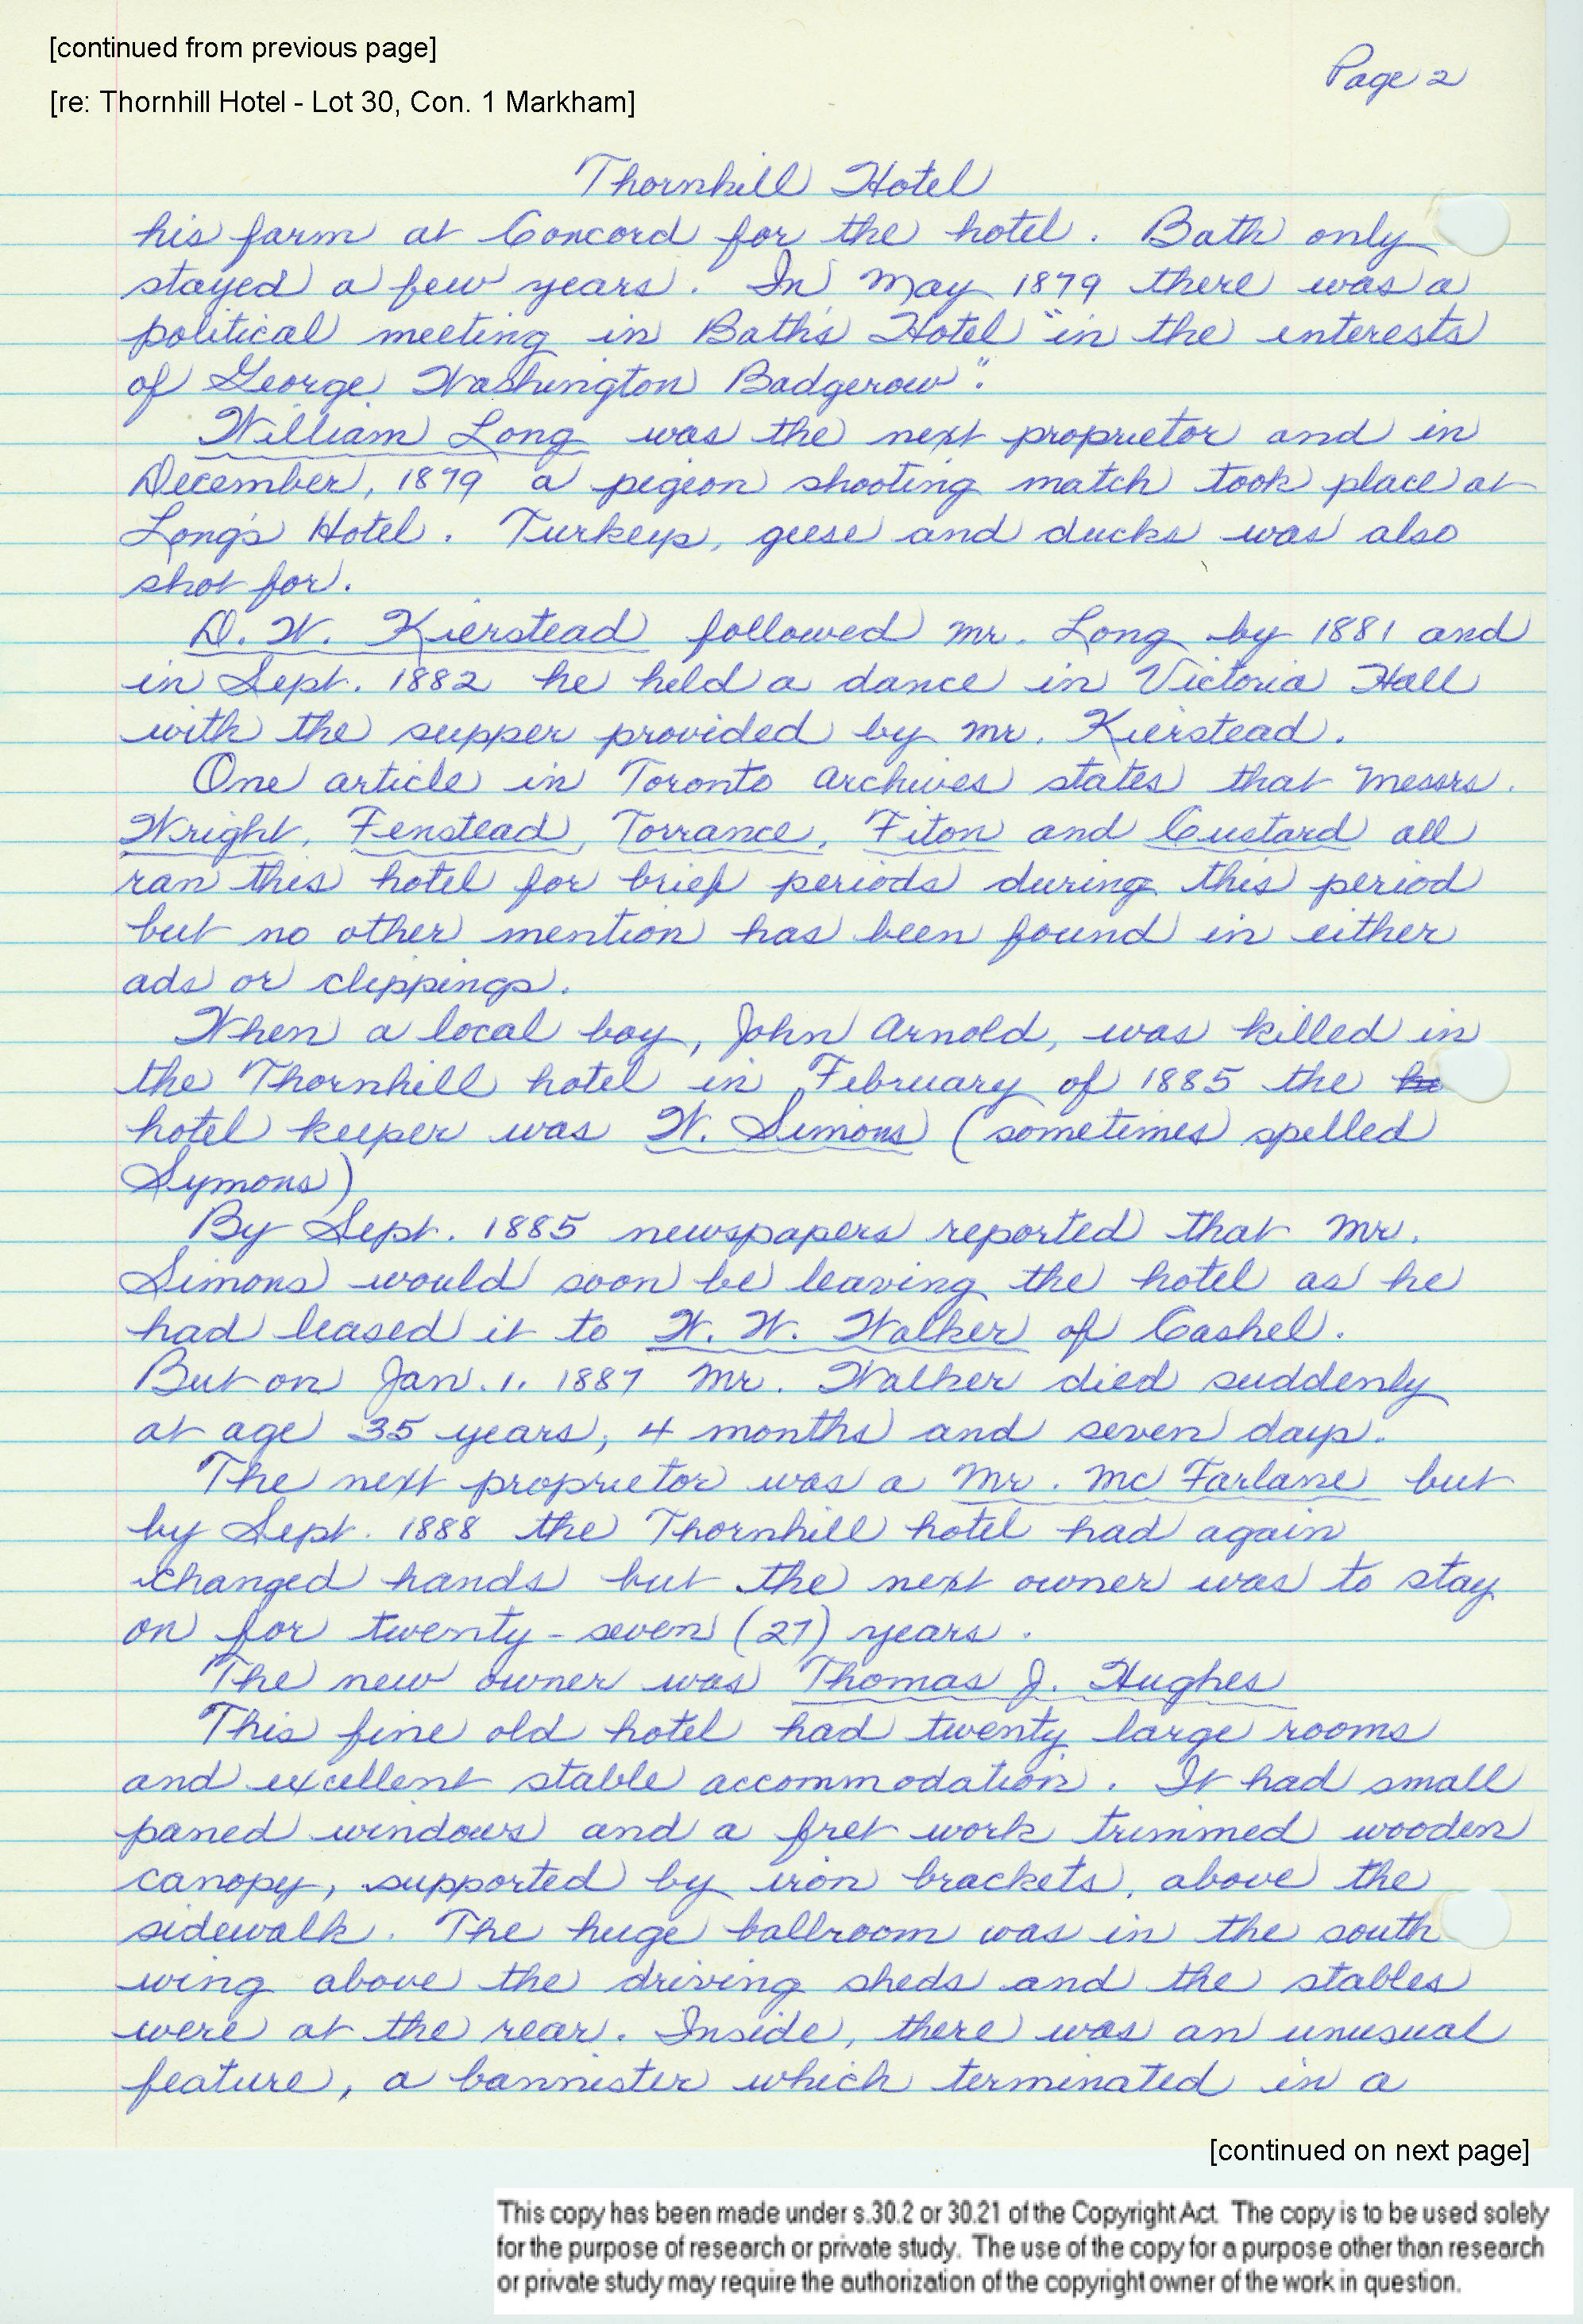 [continued from previous page]
Page 2
[re: Thornhill Hotel - Lot 30, Con. 1 Markham]
Thornhill Hotel
his farm at Concord for the hotel. Bath only
stayed a few years. In May 1879 there was a
political meeting in Bath's Hotel "in the interests
of George Washington Badgerow".
William Long was the next proprietor and in
December, 1879 a pigeon shooting match took place at
Long's Hotel. Turkeys, geese and ducks was also
shot for.
D. W. Kierstead followed Mr. Long by 1881 and
in Sept. 1882 he held a dance in Victoria Hall
with the supper provided by Mr. Kierstead.
One article in Toronto Archives states that Messrs.
Wright, Fenstead, Torrance, Fiton and Custard all
ran this hotel for brief periods during this period
but no other mention has been found in either
ads or clippings.
When a local boy, John Arnold, was killed in
the Thornhill hotel in February of 1885 the ho
hotel keeper was W. Simons (sometimes spelled
Symons)
By Sept. 1885 newspapers reported that Mr.
Simons would soon be leaving the hotel as he
had leased it to W. W. Walker of Cashel.
But on Jan. 1. 1887 Mr. Walker died suddenly
at age 35 years, 4 months and seven days.
The next proprietor was a Mr. McFarlane but
by Sept. 1888 the Thornhill hotel had again
changed hands but the next owner was to stay
on for twenty-seven (27) years.
The new owner was Thomas J. Hughes
This fine old hotel had twenty large rooms
and excellent stable accommodation. It had small
paned windows and a fret work trimmed wooden
canopy, supported by iron brackets, above the
sidewalk. The huge ballroom was in the south
wing above the driving sheds and the stables
were at the rear. Inside, there was an unusual
feature, a bannister which terminated in a
[continued on next page]
This copy has been made under s.30.2 or 30.21 of the Copyright Act. The copy is to be used solely
for the purpose of research or private study. The use of the copy for a purpose other than research
or private study may require the authorization of the copyright owner of the work in question.